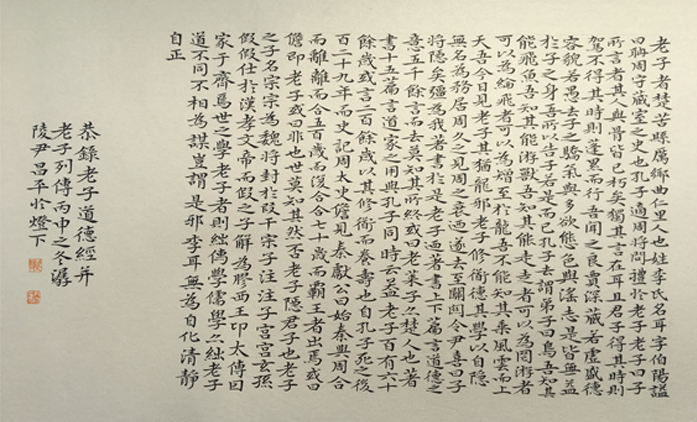 老子者楚苦縣厲鄉曲仁里人也姓李氏名耳字伯陽謚
曰聃周守藏室之史也孔子適周將問禮於老子老子曰子
所言者其人與骨皆已朽矣獨其言在耳且君子得其時則
駕不得其時則蓬累而行吾聞之良賈深藏若虛盛德
容貌若愚去子之驕氣與多欲態色與淫志是皆無益
於子之身吾所以告子若是而已孔子去謂弟子曰鳥吾知其
能飛魚吾知其能游獸吾知其能走走者可以為罔游者
可以為綸飛者可以為矰至於龍吾不能知其乘風雲而上
天吾今日見老子其猶龍邪老子修衜德其學以自隱
無名為務居周久之見周之衰迺遂去至關關令尹喜曰子
將隱矣彊為我著書於是老子迺著書上下篇言道德之
意五千餘言而去莫知其所終或曰老萊子亦楚人也著
書十五篇言道家之用與孔子同時云蓋老子百有六十
餘歲或言二百餘歲以其修衜而養壽也自孔子死之後
百二十九年而史記周太史儋見秦獻公曰始秦與周合
而離離而合五百歲而復合合七十歲而霸王者出焉或曰
儋即老子或曰非也世莫知其然否老子隱君子也老子
之子名宗宗為魏將封於段干宗子注注子宮宮玄孫
假假仕於漢孝文帝而假之子解為膠西王卬太傅因
家于齊焉世之學老子者則絀儒學儒學亦絀老子
道不同不相為謀豈謂是邪李耳無為自化清靜
自正
恭錄老子道德經并
老子列傳丙申之冬潺
陵尹昌平於燈下